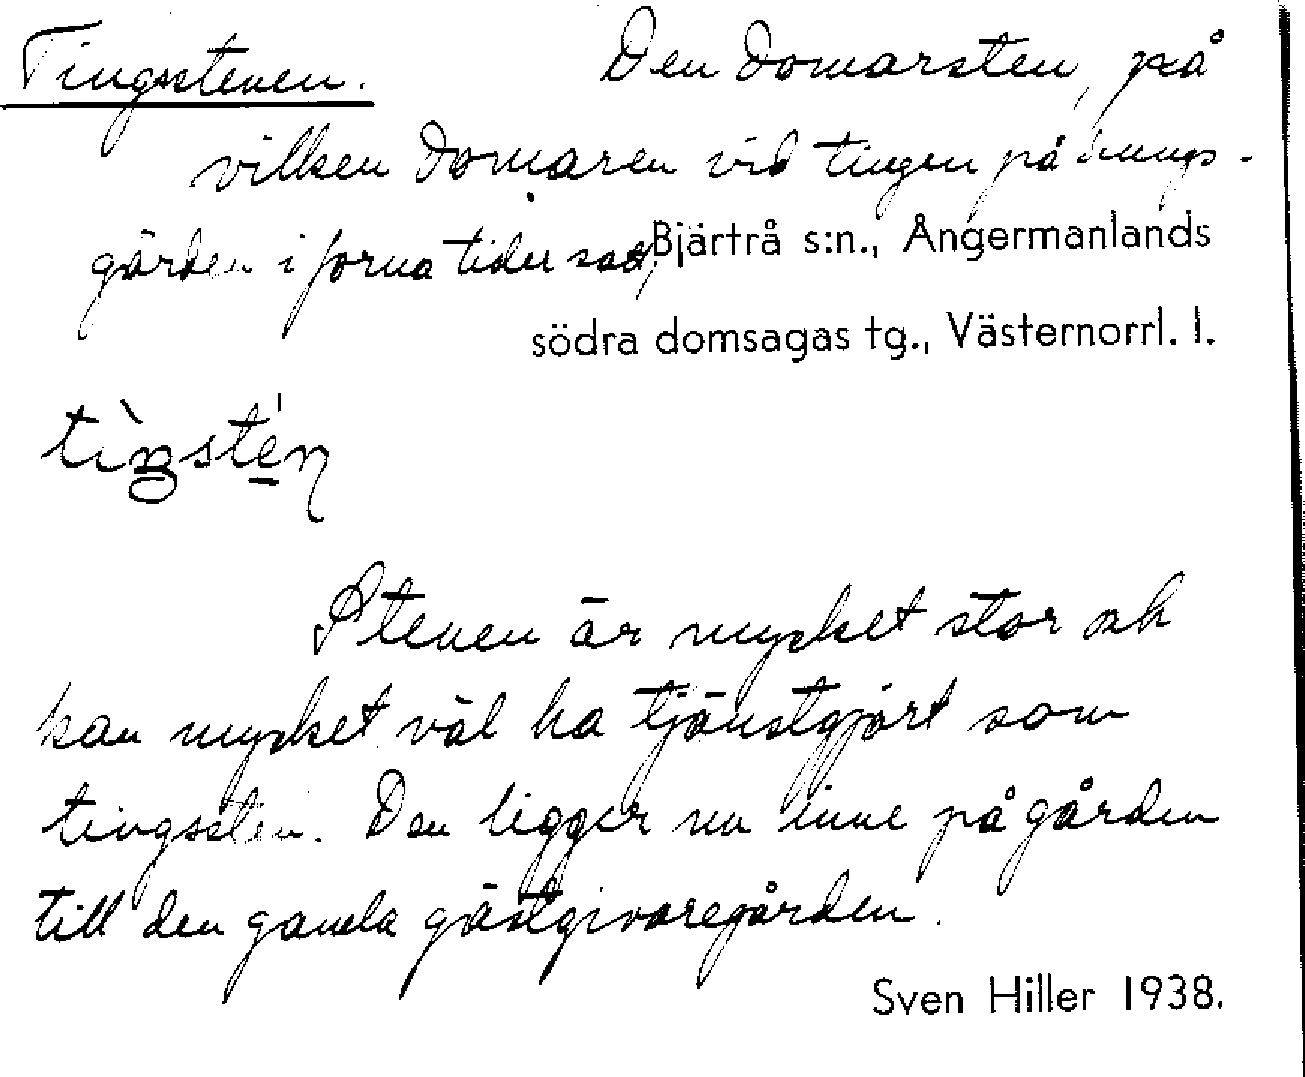 Tingsstenen. Den domarsten, på
vilken domaren vid tingen på tings-
gården i forna tider satt,
Bjärtrå s:n., Ångermanlands
södra domsagas tg., Västernorrl. l.
Stenen är mycket stor och
kan mycket väl ha tjänstgjort som
tingssten. Den ligger nu inne på gården
till den gamla gästgivaregården.
Sven Hiller 1938.